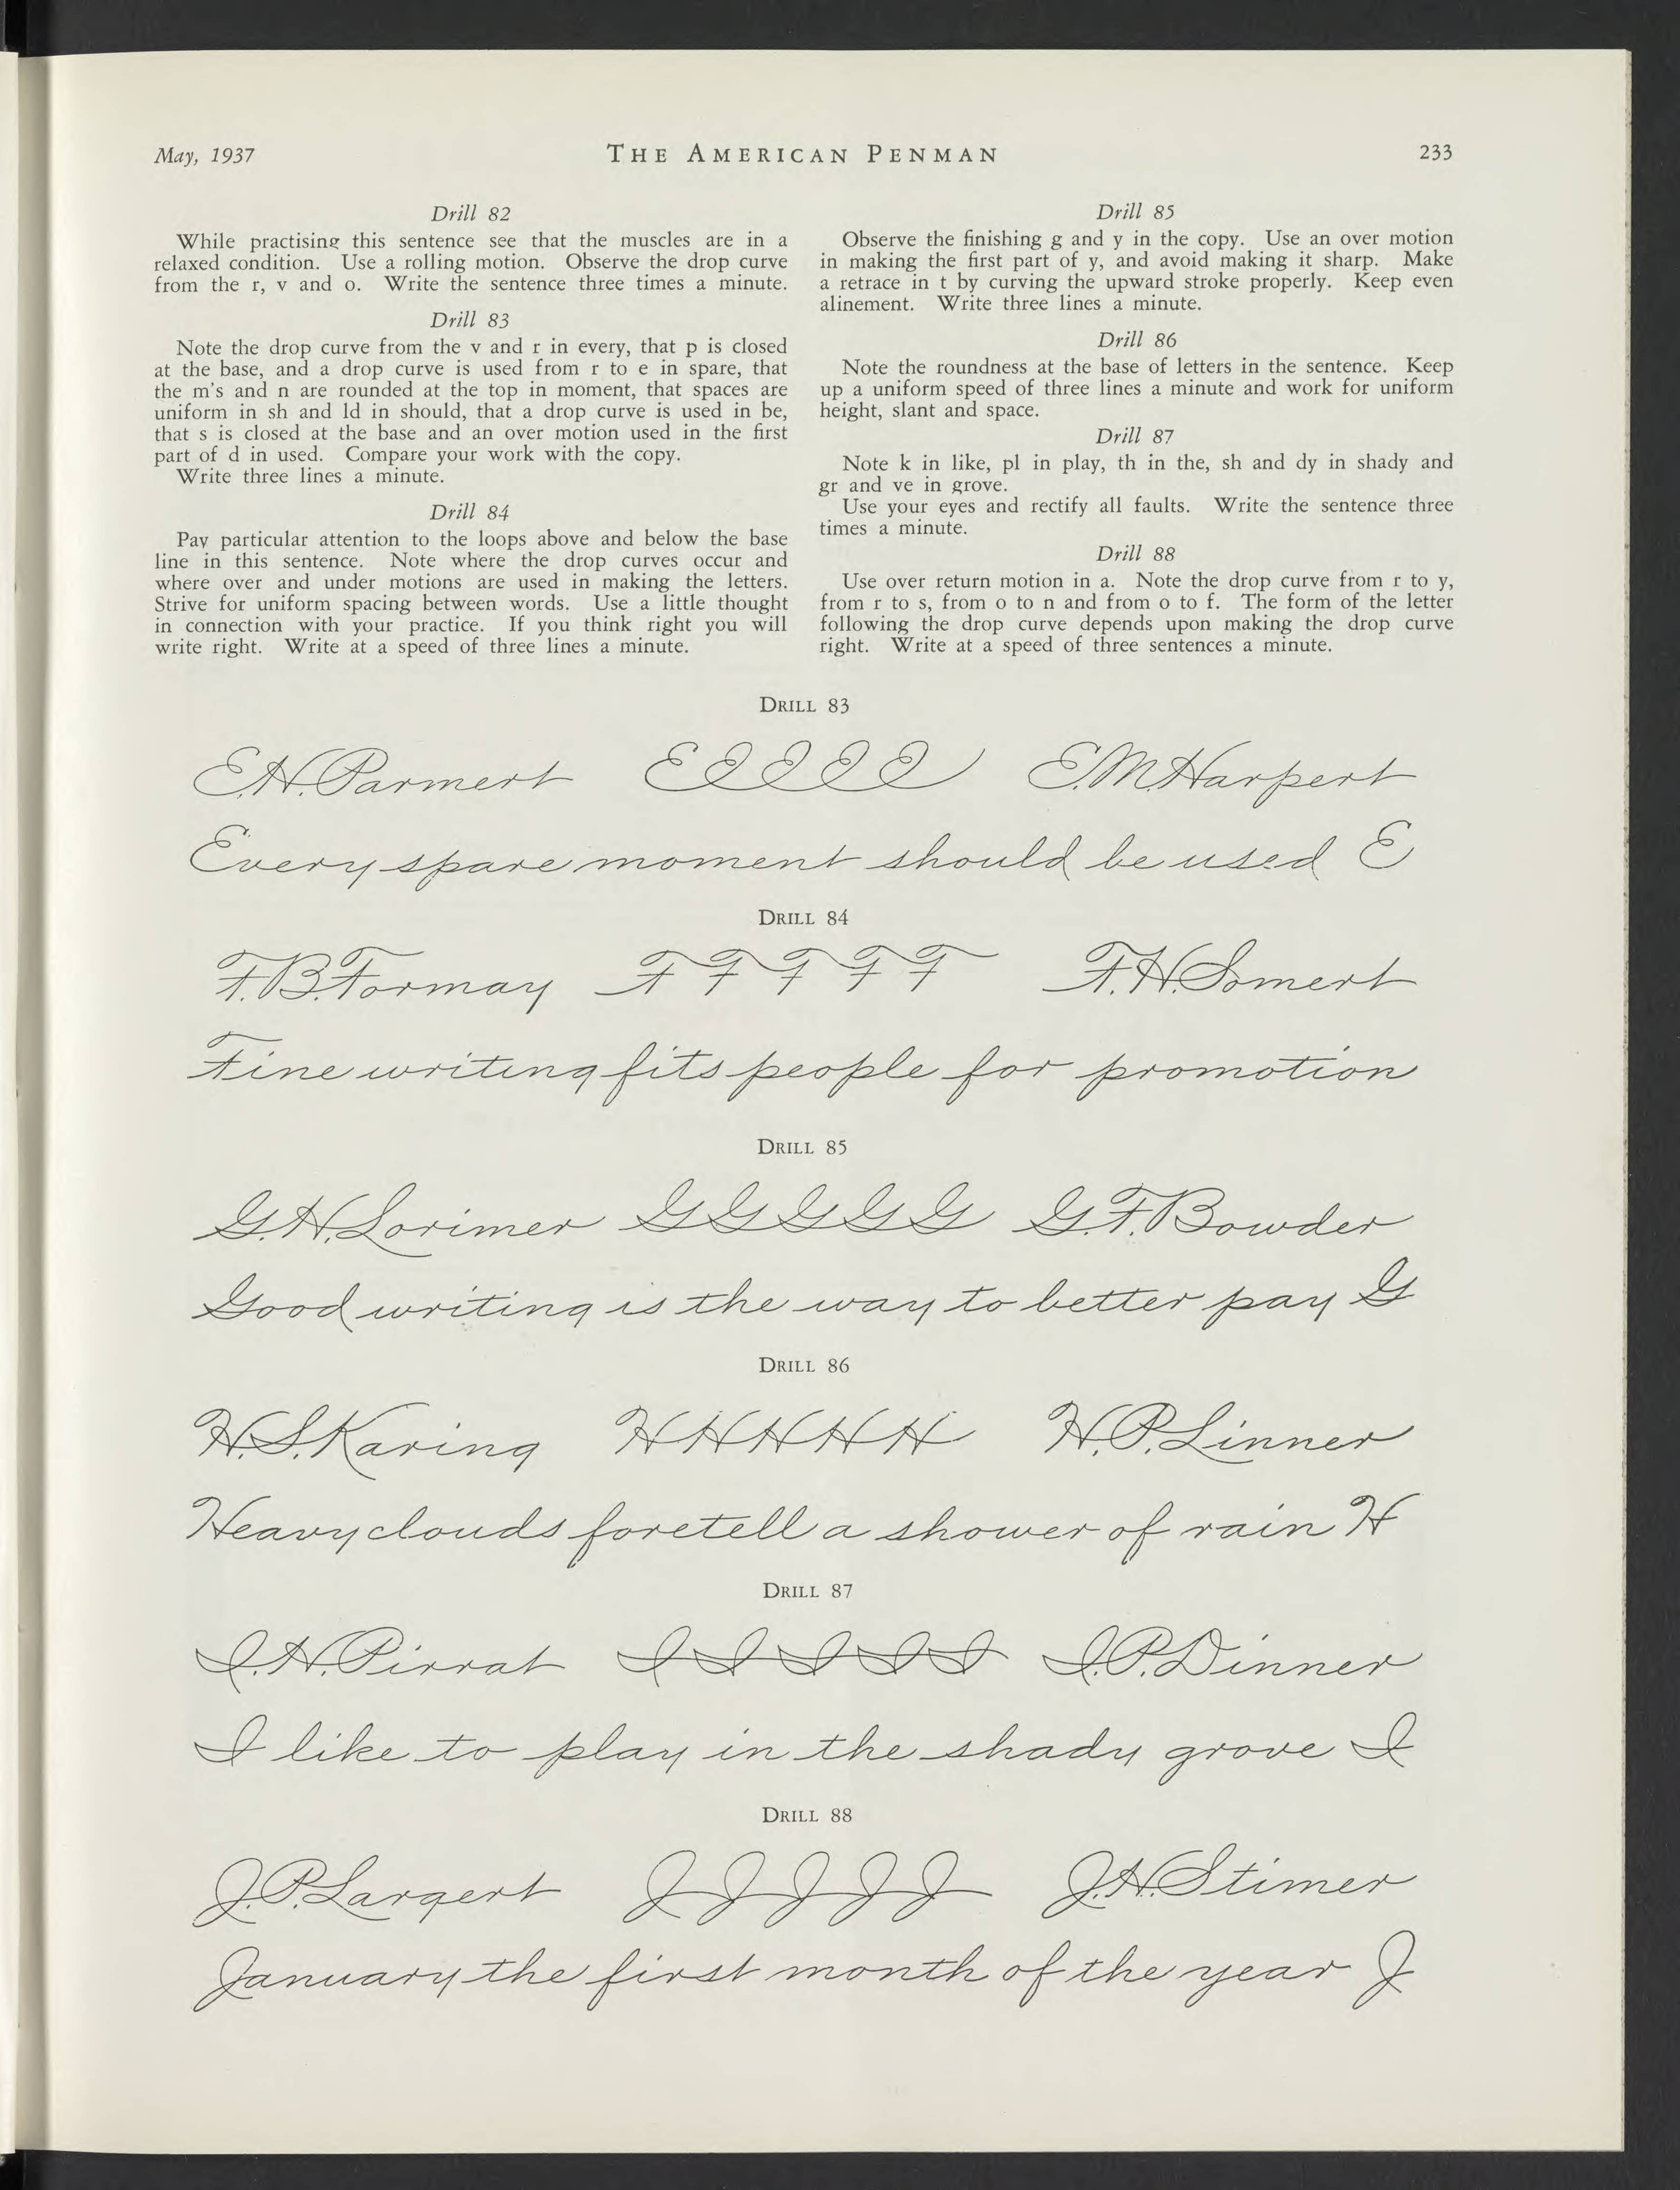 May, 1937 THE AMERICAN PENMAN 233
Drill 82
While practising this sentence see that the muscles are in a
relaxed condition. Use a rolling motion. Observe the drop curve
from the r, v and o. Write the sentence three times a minute.
Drill 83
Note the drop curve from the v and r in every, that p is closed
at the base, and a drop curve is used from r to e in spare, that
the m's and n are rounded at the top in moment, that spaces are
uniform in sh and ld in should, that a drop curve is used in be,
that s is closed at the base and an over motion used in the first
part of d in used. Compare your work with the copy.
Write three lines a minute.
Drill 84
Pay particular attention to the loops above and below the base
line in this sentence. Note where the drop curves occur and
where over and under motions are used in making the letters.
Strive for uniform spacing between words. Use a little thought
in connection with your practice. If you think right you will
write right. Write at a speed of three lines a minute.
Drill 85
Observe the finishing g and y in the copy. Use an over motion
in making the first part of y, and avoid making it sharp. Make
a retrace in t by curving the upward stroke properly. Keep even
alinement. Write three lines a minute.
Drill 86
Note the roundness at the base of letters in the sentence. Keep
up a uniform speed of three lines a minute and work for uniform
height, slant and space.
Drill 87
Note k in like, pl in play, th in the, sh and dy in shady and
gr and ve in grove.
Use your eyes and rectify all faults. Write the sentence three
times a minute.
Drill 88
Use over return motion in a. Note the drop curve from r to y,
from r to s, from o to n and from o to f. The form of the letter
following the drop curve depends upon making the drop curve
right. Write at a speed of three sentences a minute.
DRILL 83
E.H. Parmert E E E E E E.M. Harpert
Every spare moment should be used E
DRILL 84
F.B. Formay F F F F F F.H. Somert
Fine writing fits people for promotion
DRILL 85
G.H. Lorimer G G G G G G.F. Bowder
Good writing is the way to better pay G
DRILL 86
H.S. Karing H H H H H H.P. Linner
Heavy clouds foretell a shower of rain H
DRILL 87
I.H. Pirrat I I I I I I.P. Dinner
I like to play in the shady grove I
DRILL 88
J.P. Largert J J J J J J.H. Stimer
January the first month of the year J